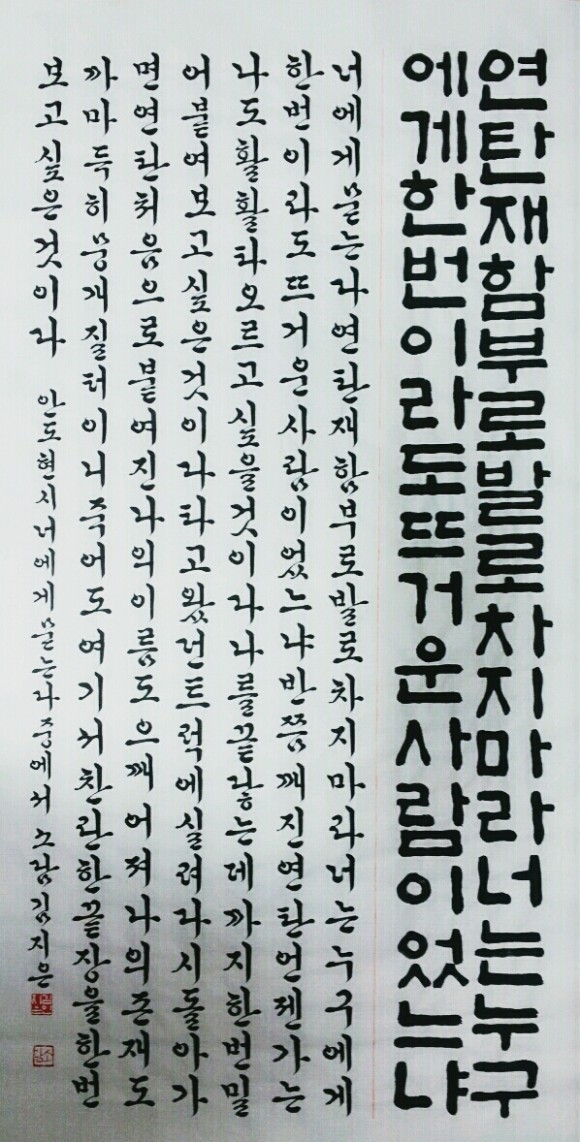 연탄재함부로발로차지마라너는누구
에게한번이라도뜨거운사람이었느냐
너에게묻는다연탄재함부로발로차지마라너는누구에게
한번이라도뜨거운사람이었느냐반쯤깨진연탄언젠가는
나도활활타오르고싶을것이다나를끝닿는데까지한번밀
어붙여보고싶은것이다타고왔던트럭에실려다시돌아가
면연탄처음으로붙여진나의이름도으깨어져나의존재도
까마득히뭉개질터이니죽어도여기서찬란한끝장을한번
보고싶은것이다 안도현시너에게묻는다중에서 김지은